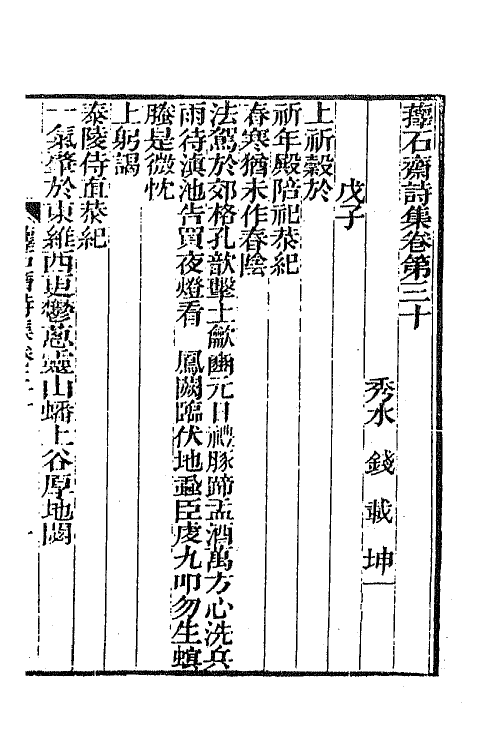 蘀石齋詩集卷第三十
秀水 錢載 坤一
戊子
上祈穀於
祈年殿陪祀恭紀
春寒猶未作春陰
法駕於郊格孔歆鑿土龡豳元日禮豚蹄盂酒萬方心洗兵
雨待滇池告買夜燈看 鳳闕臨伏地
臣虔九叩勿生螟
螣是微忱
上躬謁
泰陵侍直恭紀
一氣肇於東維西更鬱蔥靈山蟠上谷厚地闢